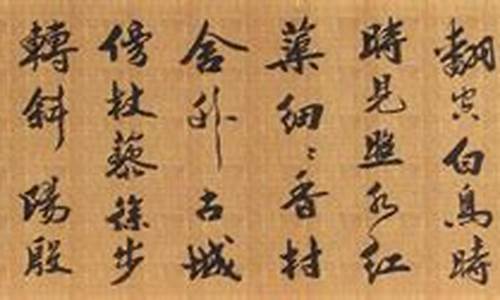 翻空白鳥時
時見照水紅
蕖細〻香村
舍外古城
傍杖藜徐步
轉斜陽殷